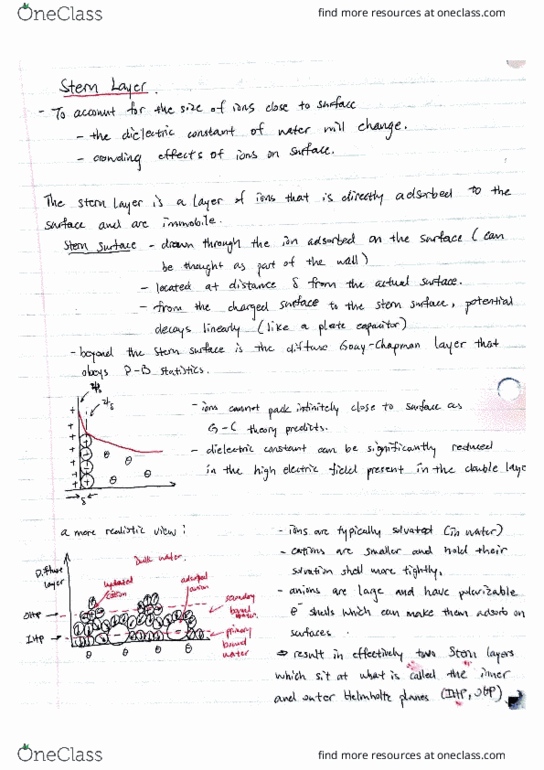 OneClass
find more resources at oneclass.com
Stern Layer.
- To account for the size of ions close to surface
- the dielectric constant of water will change.
- crowding effects of ions on surface.
The stern Layer is a layer of ions that is directly adsorbed to the
surface and are immobile.
Stern surface - drawn through the ion adsorbed on the surface (can
be thought as part of the wall)
- located at distance δ from the actual surface.
- from the charged surface to the stern surface, potential
decays linearly (like a plate capacitor)
- beyond the stern surface is the diffuse Gouy-Chapman layer that
obeys P-B statistics.
- ions cannot pack infinitely close to surface as
G-C theory predicts.
- dielectric constant can be significantly reduced
in the high electric field present in the double laye
δ
a more realistic view:
Bulk water
Diffuse
layer
cation
adsorbed
anion
OHP
IHP
secondary
bound
primary
bound
water
- ions are typically solvated (in water)
- cations are smaller and hold their
solvation shell more tightly,
- anions are large and have polarizable
e⁻ shells which can make them adsorb on
surfaces.
⇒ result in effectively two Stern layers
which sit at what is called the inner
and outer Helmholtz planes (IHP, OHP)
OneClass
find more resources at oneclass.com